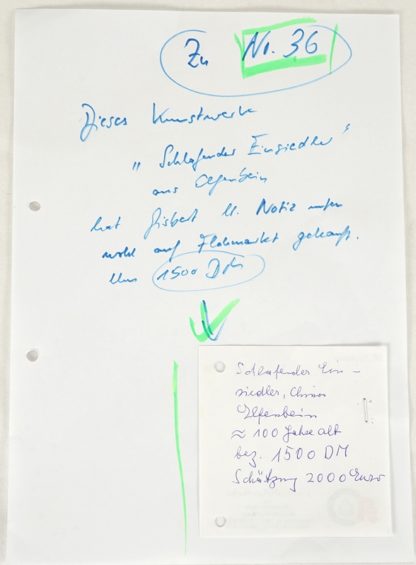 Zu Nr. 36
Dieses Kunstwerk
„Schlafender Einsiedler"
aus Elfenbein
hat Gisbert lt. Notiz unten
wohl auf Flohmarkt gekauft.
1500 DM
Schlafender Ein-
siedler, China
Elfenbein
≈ 100 Jahre alt
bez. 1500 DM
Schätzung 2000 Euro